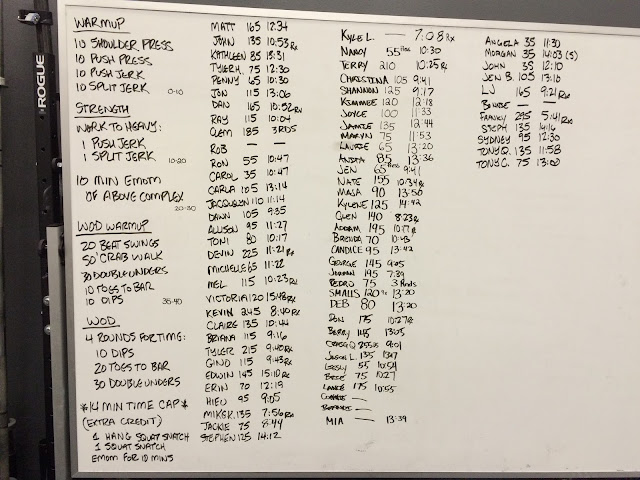 ROGUE
WARMUP
10 SHOULDER PRESS
10 PUSH PRESS
10 PUSH JERK
10 SPLIT JERK
0-10
STRENGTH
WORK TO HEAVY:
1 PUSH JERK
1 SPLIT JERK
10-20
10 MIN EMOM
OF ABOVE COMPLEX
20-30
WOD WARMUP
20 BEAT SWINGS
50' CRAB WALK
30 DOUBLE UNDERS
10 TOES TO BAR
10 DIPS
35-40
WOD
4 ROUNDS FOR TIME:
10 DIPS
20 TOES TO BAR
30 DOUBLE UNDERS
*14 MIN TIME CAP*
(EXTRA CREDIT)
1 HANG SQUAT SNATCH
1 SQUAT SNATCH
EMOM FOR 10 MINS
MATT 165 12:34
JOHN 135 10:53 Rx
KATHLEEN 85 13:31
TYLER H. 75 12:30
PENNY 65 10:30
JON 115 13:06
DAN 165 10:52 Rx
RAY 115 10:04
CLEM 185 3RDS
ROB — —
RON 55 10:47
CAROL 35 10:47
CARLA 105 13:14
JACQUELYN 110 11:14
DAWN 105 9:35
ALLISON 95 11:27
TONI 80 10:17
DEVIN 225 11:21 Rx
MICHELLE 65 11:22
MEL 115 10:23 Rx
VICTORIA 120 15:48 Rx
KEVIN 245 8:40 Rx
CLAIRE 135 10:44
BRIANA 115 9:16
TYLER 215 9:40 Rx
GINO 115 9:43 Rx
EDWIN 145 15:10 Rx
ERIN 70 12:19
HIEU 95 9:05
MIKE R. 135 7:56 Rx
JACKIE 75 8:44
STEPHEN 125 14:12
KYLE L. — 7:08 Rx
NANCY 55 10:30
TERRY 210 10:25 Rx
CHRISTINA 105 9:41
SHANNON 125 9:17
KIMMEE 120 12:18
JOYCE 100 11:33
JAMIE 135 12:44
MARYN 75 11:53
LAURIE 65 13:20
85 13:36
JEN 65 9:41
NATE 155 10:34 Rx
MAJA 90 13:50
KYLENE 125 14:42
GLEN 140 8:23 Rx
ADDAM 195 10:17 Rx
BRENDA 70 10:43
CANDICE 95 13:42
GEORGE 145 9:05
JORDAN 145 7:39
PEDRO 75 3 Rnds
SMALLS 120 13:20
DEB 80 13:20
DON 175 10:27 Rx
BERRY 145 13:05
GREGG Q. 9:01
JASON L. 135
LESLY 55 10:54
BREE 75 10:27
LANCE 175 10:55
CONNIE —
—
MIA — 13:39
ANGELA 35 11:30
MORGAN 35 14:03 (5)
JOHN 35 12:10
JEN B. 105 13:10
LJ 165 9:21 Rx
— —
FRANKY 295 5:41 Rx
STEPH 135 14:16
SYDNEY 95 12:30
TONY Q. 135 11:58
TONY C. 75 13:00